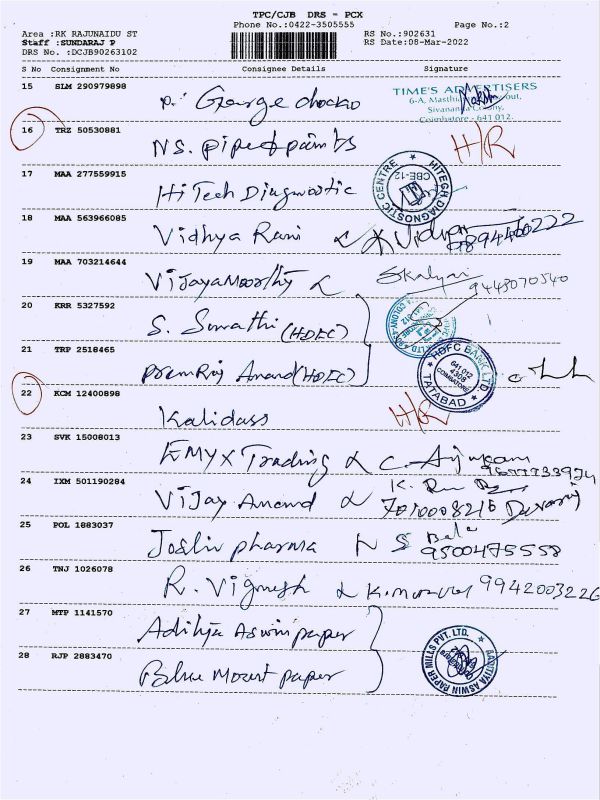 TPC/CJB DRS - PCX
Phone No.:0422-3505555 Page No.:2
Area :RK RAJUNAIDU ST RS No.:902631
Staff :SUNDARAJ P RS Date:08-Mar-2022
DRS No. :DCJB90263102
S No Consignment No Consignee Details Signature
15 SLM 290979898 George TIME'S ADVERTISERS
Coimbatore - 641 012.
16 TRZ 50530881 NS. pipe & paints H/R
17 MAA 277559915 HiTech Diagnostic HITECH DIAGNOSTIC CENTRE CBE-12
18 MAA 563966085 Vidhya Rani Vidhya
19 MAA 703214644 VijayaMoorthy Skalyani 9443070540
20 KRR 5327592 S. Sumathi (HDFC)
21 TRP 2518465 PremRaj Anand (HDFC) HDFC BANK LTD 641 012 4308 COIMBATORE TATABAD
22 KCM 12400898 Kalidass H/R
23 SVK 15008013 EMYX Trading
24 IXM 501190284 Vijay Anand 7010008216 Devaraj
25 POL 1883037 Joslin pharma NS Bala 9500475558
26 TNJ 1026078 R. Vignesh 9942003226
27 MTP 1141570 Adithya Aswin paper
28 RJP 2883470 Blue Mount paper AADITYA ASWIN PAPER MILLS PVT. LTD.